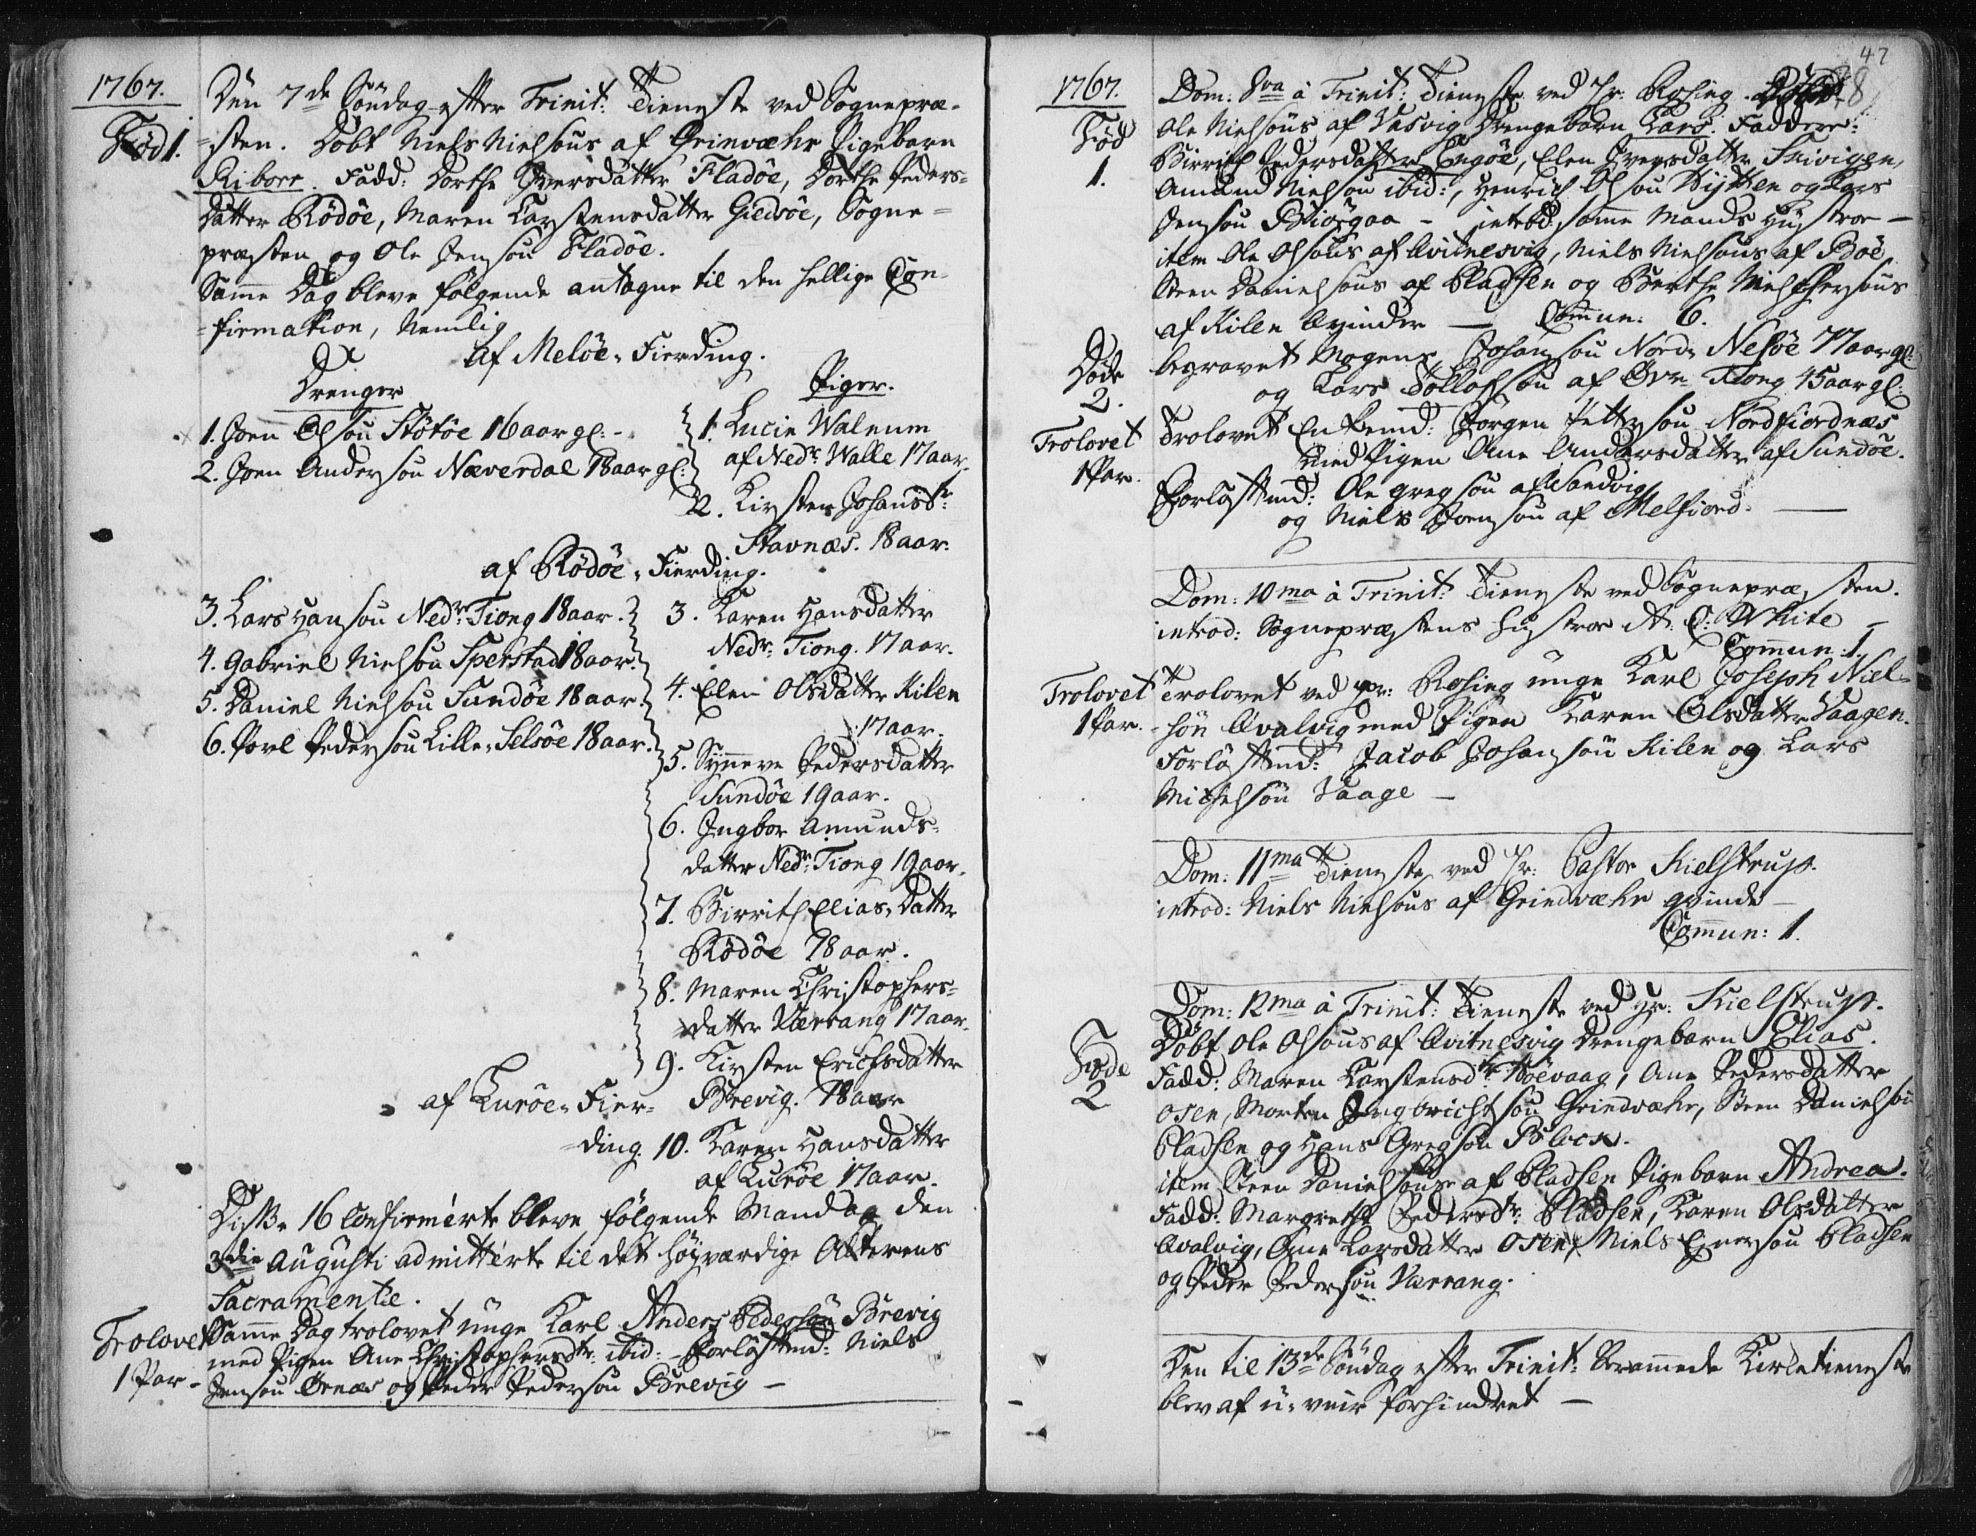 1767.
Den 7de Søndag efter Trinit: Tieneste ved Sognepræ-
Fød 1.
-sten. Døbt Niels Nielsøns af Grinvæhr Pigebarn
Riborr. Fadd: Dorthe Iversdatter Fladøe, Dorthe Peders-
datter Rødøe, Maren Carstensdatter Giedsøe, Sogne-
præsten og Ole Jensøn Fladøe.
Samme Dag bleve følgende antagne til den hellige Con-
-firmation, Nemlig
af Meløe-Fierding.
Drenger
Piger.
1. Joen Olsøn Støtøe 16 aar gl: -
2. Joen Andersøn Næverdal 18 aar gl:
1. Lucie Walnum
af Nedr: Walle 17 aar.
2. Kirsten Johansdr:
Stavnæs. 18 aar.
af Rødøe-Fierding.
3. Lars Hansøn Nedr: Tiong 18 aar.
4. Gabriel Nielsøn Sperstad 18 aar.
5. Daniel Nielsøn Sundøe 18 aar.
6. Povl Pedersøn Lille-Selsøe 18 aar.
3. Karen Hansdatter
Nedr: Tiong. 17 aar.
4. Elen Olsdatter Kilen
17 aar.
5. Synneve Pedersdatter
Sundøe 19 aar.
6. Ingbor Amunds-
datter Nedr: Tiong 19 aar.
7. Birrith Elias-Datter
Rødøe 18 aar.
8. Maren Christophers-
datter Værrang 17 aar.
9. Kirsten Erichsdatter
Brevig. 18 aar
af Lurøe-Fier-
-ding. 10. Karen Hansdatter
af Lurøe 17 aar.
Disse 16 Confirmerte bleve følgende Mandag den
3die Augusti admitterte til det høyværdige Alterens
Sacramente.
Trolovet
1 Par -
Samme Dag trolovet unge Karl Anders Pedersøn Brevig
med Pigen Ane Christophersdtr: ibid: - Forløftmd: Niels
Jensøn Ørnæs og Peder Pedersøn Brevig -
47
1767.
Dom: 8va à Trinit: Tieneste ved Hr: Rosing. Døbt
Fød
1.
Ole Nielsøns af Vasvig Drengebarn Lars. Faddere:
Birrith Pedersdatter Engøe, Elen Iversdatter
Amund Nielsøn ibid:, Henrich Olsøn Hytten og Lars
Jensøn Biørgaa - introd. samme Mands Hustroe -
item Ole Olsøns af Qvitnesvig, Niels Nielsøns af Boe
Steen Danielsøns af Pladsen og Berthe
af Kilen Qvinder - Commun: 6.
Døde
2.
begravet Mogens Johansøn Nord-Nesøe 77 aar gl:
og Lars Tollofsøn af Øvr. Tiong 45 aar gl:
Trolovet
1 Par.
Trolovet Enkemd: Jørgen Pettersøn Nordfiordnæs
med Pigen Ane Andersdatter af Sundøe.
Forløftmd: Ole Gregsøn af Sandvig
og Niels Joensøn af Melfiord. -
Dom: 10ma à Trinit: Tieneste ved Sognepræsten.
introd: Sognepræstens Hustroe A: C: White -
Commun: 1.
Trolovet
1 Par. -
Trolovet ved Hr: Rosing unge Karl Joseph Niel-
søn Qvalvig med Pigen Karen Olsdatter Vaagen.
Forløftmd: Jacob Johansøn Kilen og Lars
Michelsøn Vaage -
Dom: 11ma Tieneste ved Hr: Pastor Kielstrup.
introd: Niels Nielsøns af Grindvæhr qvinde -
Commun: 1.
Dom: 12ma à Trinit: Tieneste ved Hr: Kielstrup.
Føde
2
Døbt Ole Olsøns af Qvitnesvig Drengebarn Elias.
Fadd: Maren Carstensdtr Høevaag, Ane Pedersdatter
Osen, Morten Ingbrichtsøn Grindvæhr, Steen Danielsøn
Pladsen og Hans Gregsøn Block.
item Steen Danielsøns af Pladsen Pigebarn Andrea.
Fadd: Margrethe Pedersdr: Pladsen, Karen Olsdatter
Qvalvig, Ane Larsdatter Osen, Niels Einersøn Pladsen
og Peder Pedersøn Værrang.
Den til 13de Søndag efter Trinit: Berammede Kirketieneste
blev af u-veir forhindret -